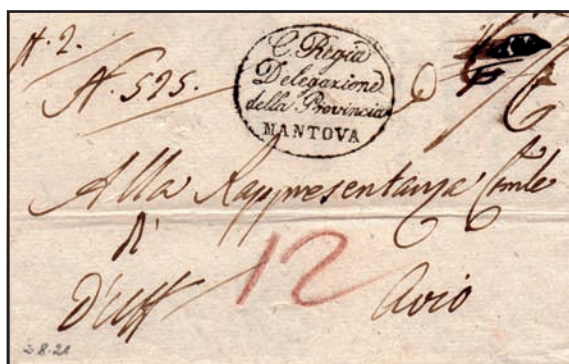 N. 2.
N. 525.
C. Regia
Delegazione
della Provincia
MANTOVA
Alla Rappresentanza Comle
di
D'Uff Avio
12